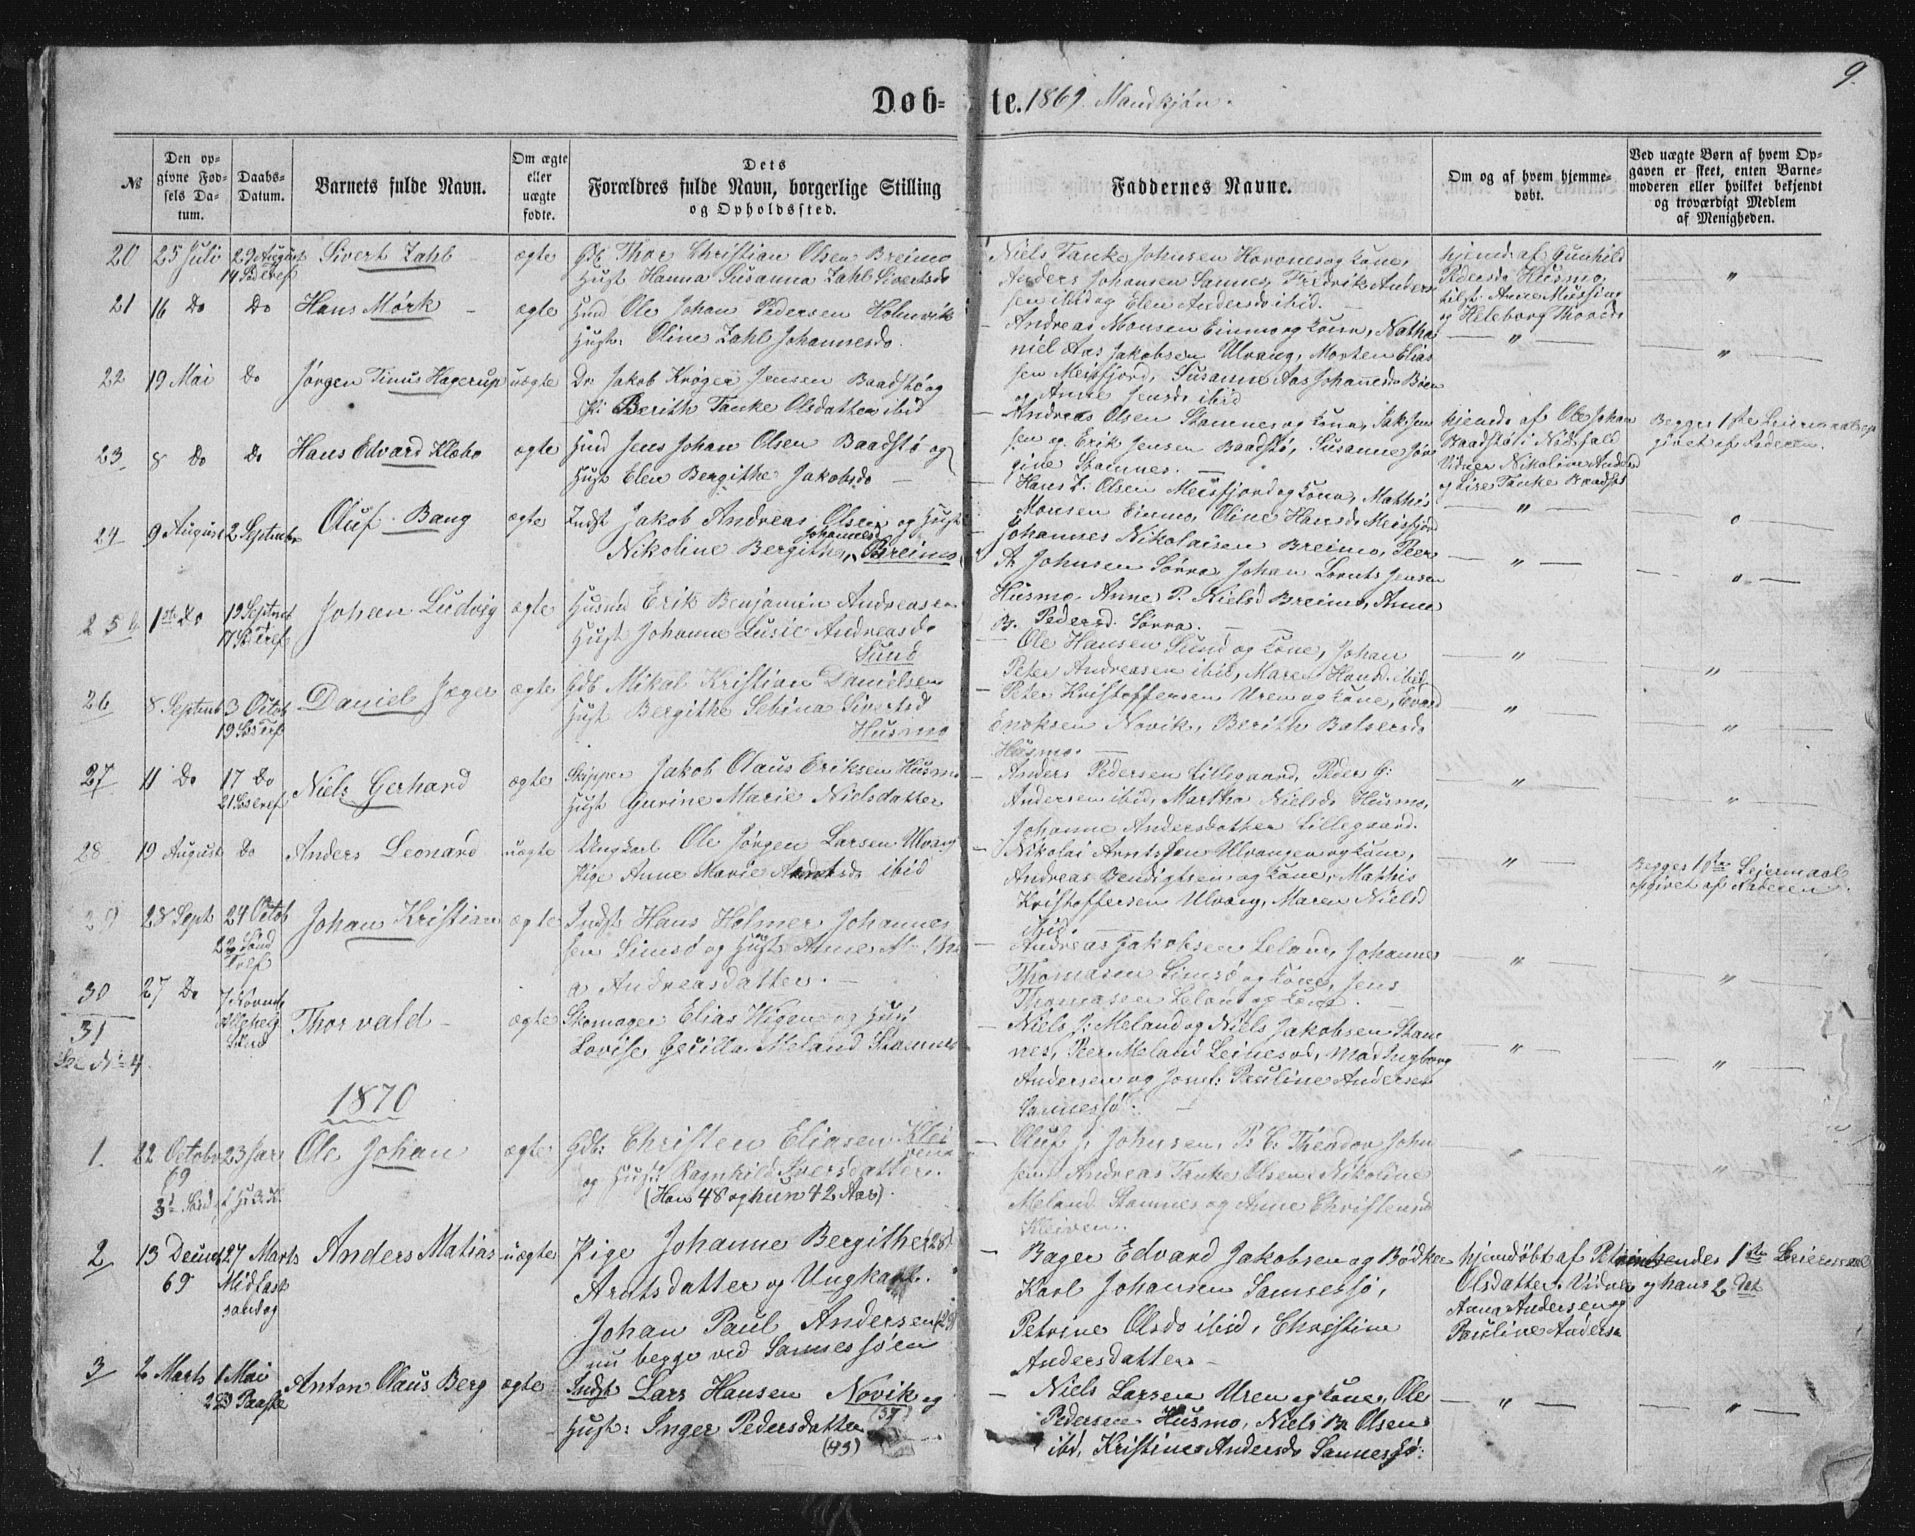 9.
Døb- te. 1869. Mandkjøn.
№
Den opgivne Fødsels Datum.
Daabs-Datum.
Barnets fulde Navn.
Om ægte eller uægte fødte.
Dets Forældres fulde Navn, borgerlige Stilling og Opholdssted.
Faddernes Navne.
Om og af hvem hjemmedøbt.
Ved uægte Børn af hvem Opgaven er skeet, enten Barnemoderen eller hvilket bekjendt og troværdigt Medlem af Menigheden.
20 25 Juli 29 August Sivert Zahl ægte Gdb Thor Christian Olsen Breimo
Hust Hanna Susanna Zahl Sivertsdr
Niels Tanke Johnsen og Kone,
Anders Johansen Sannes, Fredrik Andersen ibid og Elen Andersdr ibid. —
hjemd. af Gunhild
Pedersdr Husmo,
"
21 16 Do Do Hans Mørk ægte Hmd Ole Johan Pedersen Holmvik
Hust: Oline Zahl Johannesdr.
— Andreas Monsen Einmo og Kone, Nathaniel Aas Jakobsen Ulvang, Morten Eliassen Meisfjord, Susanna Aas Johannesdr
og Anne Jensdr ibid
— " —
— " —
22 19 Mai Do Jørgen Tinus Hagerup uægte Dr. Jakob Krøger Jensen Baadstø og
Pi: Berith Tanke Olsdatter ibid
— Andreas Olsen Stamnes og Kone,
og Erik Jensen Baadstø, Susanne
Stamnes. —
hjemdr af Ole Johan
Baadstø i Nødsfald
Vidner Nikoline
og Lise Tanke Baadstø
Begges 1ste Leiermaal
givet af Faderen.
23 8 Do Do Hans Edvard Klæbo ægte Hmd Jens Johan Olsen Baadstø og
Hust Elen Bergithe Jakobsdr —
— Hans Z. Olsen Meisfjord og Kone, Mathis
Monsen Einmo, Oline Hansdr Meisfjord
— " —
24 9 August 2 Septembr Oluf Bang ægte Indst Jakob Andreas Olsen og Hust
Nikoline Bergithe Johannesd Breimo
Johannes Nikolaisen Breimo, Peer
A Johnsen Sørra Johan Lornts Jensen
Husmo Anne P. Nielsd Breimo, Anne
B. Pedersd. Sørra. —
— " —
— " —
25 1ste Do 19 Septmbr Johan Ludvig ægte Husmd Erik Benjamin Andreasen
Hust Johanna Lusie Andreasdr
Sund
— Ole Hansen Sund og Kone, Johan
Peter Andreasen ibid, Maren Hansd. ibid
— " —
"
26 8 Septembr 3 Octob Daniel Jæger ægte Gdb Mikal Kristian Danielsen
Hust Bergithe Sebina Sivertsd
Husmo
— Peter Kristoffersen Uren og Kone, Evard
Enoksen Novik, Berith Balsersdr
Husmo. —
— " —
"
27 11 Do 17 Do Niels Gerhard ægte Skipper Jakob Olaus Eriksen Husmo
Hust Gurine Marie Nielsdatter
— Anders Pedersen Lillegaard, Peder G:
Andersen ibid, Martha Nielsdr Husmo,
Johanne Andersdatter Lillegaard.
"
"
28 19 August Do Anders Leonard uægte Ungkarl Ole Jørgen Larsen Ulvang
Pige Anne Marie Arntsdr ibid
— Nikolai Arntssen Ulvangen og Kone,
Andreas Bendigtsen og Kone, Mathis
Kristoffersen Ulvang, Maren Nielsd
ibid. —
— " —
Begges 1ste Leiermaal
opgivet af Faderen.
29 28 Sept 24 Octob Johan Kristian ægte Indst Hans Holmer Johannessen Simsø og Hust Anne
Andreasdatter. —
— Andreas Jakobsen Leland, Johannes
Thomasen Simsø og Kone, Jens
Thomasen Leland og Kone. —
"
"
30 27 Do 7 Novmbr Thorvald ægte Skomager Elias Wigen og Hust
Lovise Cecilia Meland Stamnes
31
— Niels J: Meland og Niels Jakobsen Stamnes, Peer Meland Leinesod, Mad Ingborg
Andersen og Jomf: Pauline Andersen
Sannessø. —
"
"
1870
1. 22 October 23 Jan Ole Johan ægte Gdb: Christen Eliasen Kleivene
69
og Hust Ragnhild Iversdatter.
(Han 48 og hun 42 Aar).
— Oluf J. Johnsen, P. C. Theodor Johnsen, Andreas Tanke Olsen, Nikoline
Meland Stamnes og Anne Christensd
Kleiven.
"
"
2 13 Decmb 27 Marts Anders Matias uægte Pige Johanne Bergithe (28)
69 Midfastsøndag
Arntsdatter og Ungkarl
Johan Paul Andersen (29)
nu begge ved Sannessøen
— Bager Edvard Jakobsen og Bødker
Karl Johansen Sannessø,
Petrine Olsdr ibid, Christine
Andersdatter —
hjemdøbt af Petrine
Olsdatter. Vidner
Anna Andersen og
Pauline Anders.
hendes 1ste Leiermaal
og hans 2det
3 2 Marts 1 Mai Anton Olaus Berg ægte Indst Lars Hansen Novik og
2 S Paaske
(37)
Hust: Inger Pedersdatter
(43)
— Niels Larsen Uren og Kone, Ole
Pedersen Husmo, Niels B Olsen
ibd, Kristine Andersdr Sannessø:
— " —
— " —